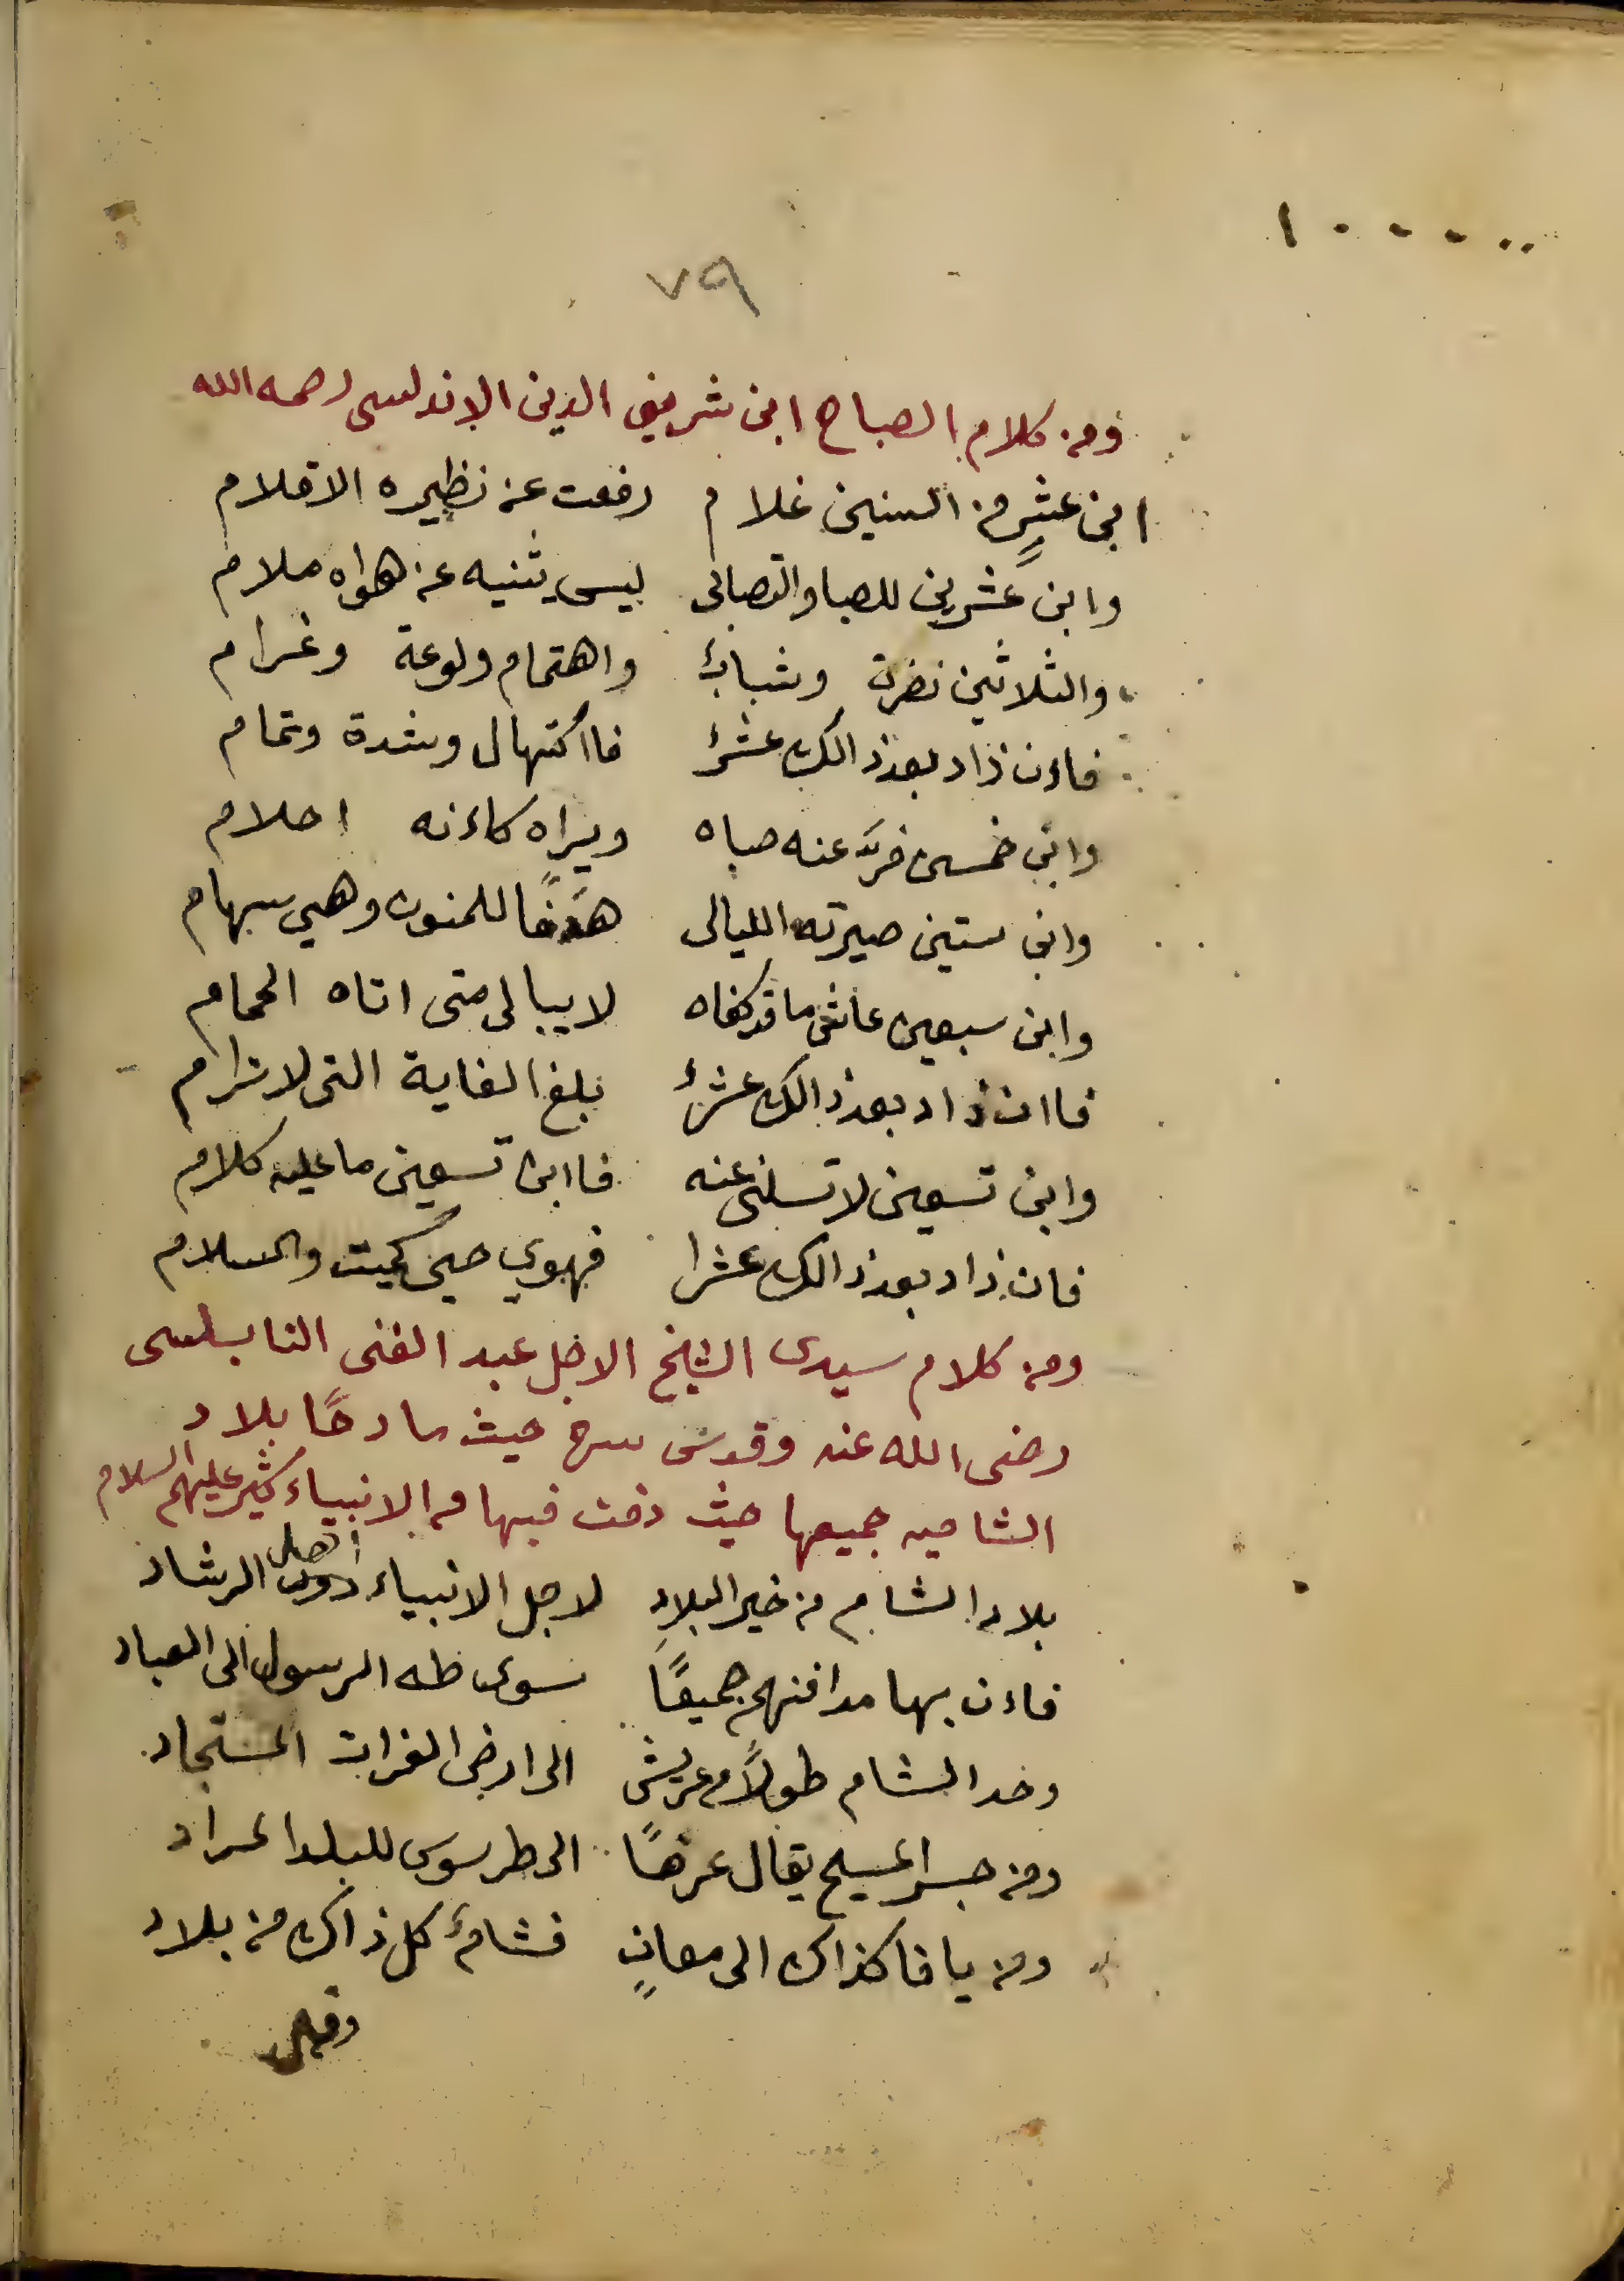 ١٠٠٠٠٠
٧٩
ومن كلام الصباح ابن شريفى الدين الاندلسى رحمه الله
ابن عشرٍ من السنين غلام رفعت عن نظيره الاقلام
وابن عشرين للصبا والتصابى ليس يثنيه عن هواه ملام
والثلاثين نضرت وشبابٌ واهتمام ولوعة وغرام
فاءن زاد بعد ذالك عشرٌ فااكتهال وشدة وتمام
وابن خمسين فرَّ عنه صباه ويراه كاءنه احلام
وابن ستين صيرته الليالى هدَفًا للمنون وهي سهام
وابن سبعين عاش ما قد كفاه لا يبالى متى اتاه الحمام
فاان زاد بعد ذالك عشرٌ بلغ الغاية التى لا ترام
وابن تسعين لا تسلنى عنه فاابن تسعين ما عليه كلام
فان زاد بعد ذالك عشرا فهوي حين كميت والسلام
ومن كلام سيدى الشيخ الاجل عبد الغنى النابلسى
رضى الله عنه وقدس سره حيث مادحًا بلاد
الشاميه جميعها حيث دفت فيها من الانبياء كثير عليهم السلام
بلاد الشام من خير البلادِ لاجل الانبياء اهل الرشاد
فاءن بها مدافنهم جميعًا سوى طه الرسول الى العباد
وخد الشام طولاً من عريش الى ارض الفرات المستجاد
ومن جسر المسيح يقال عرضًا الى طرسوس للبلد المراد
ومن يافا كذاك الى معانٍ فشامٌ كل ذاك من بلاد